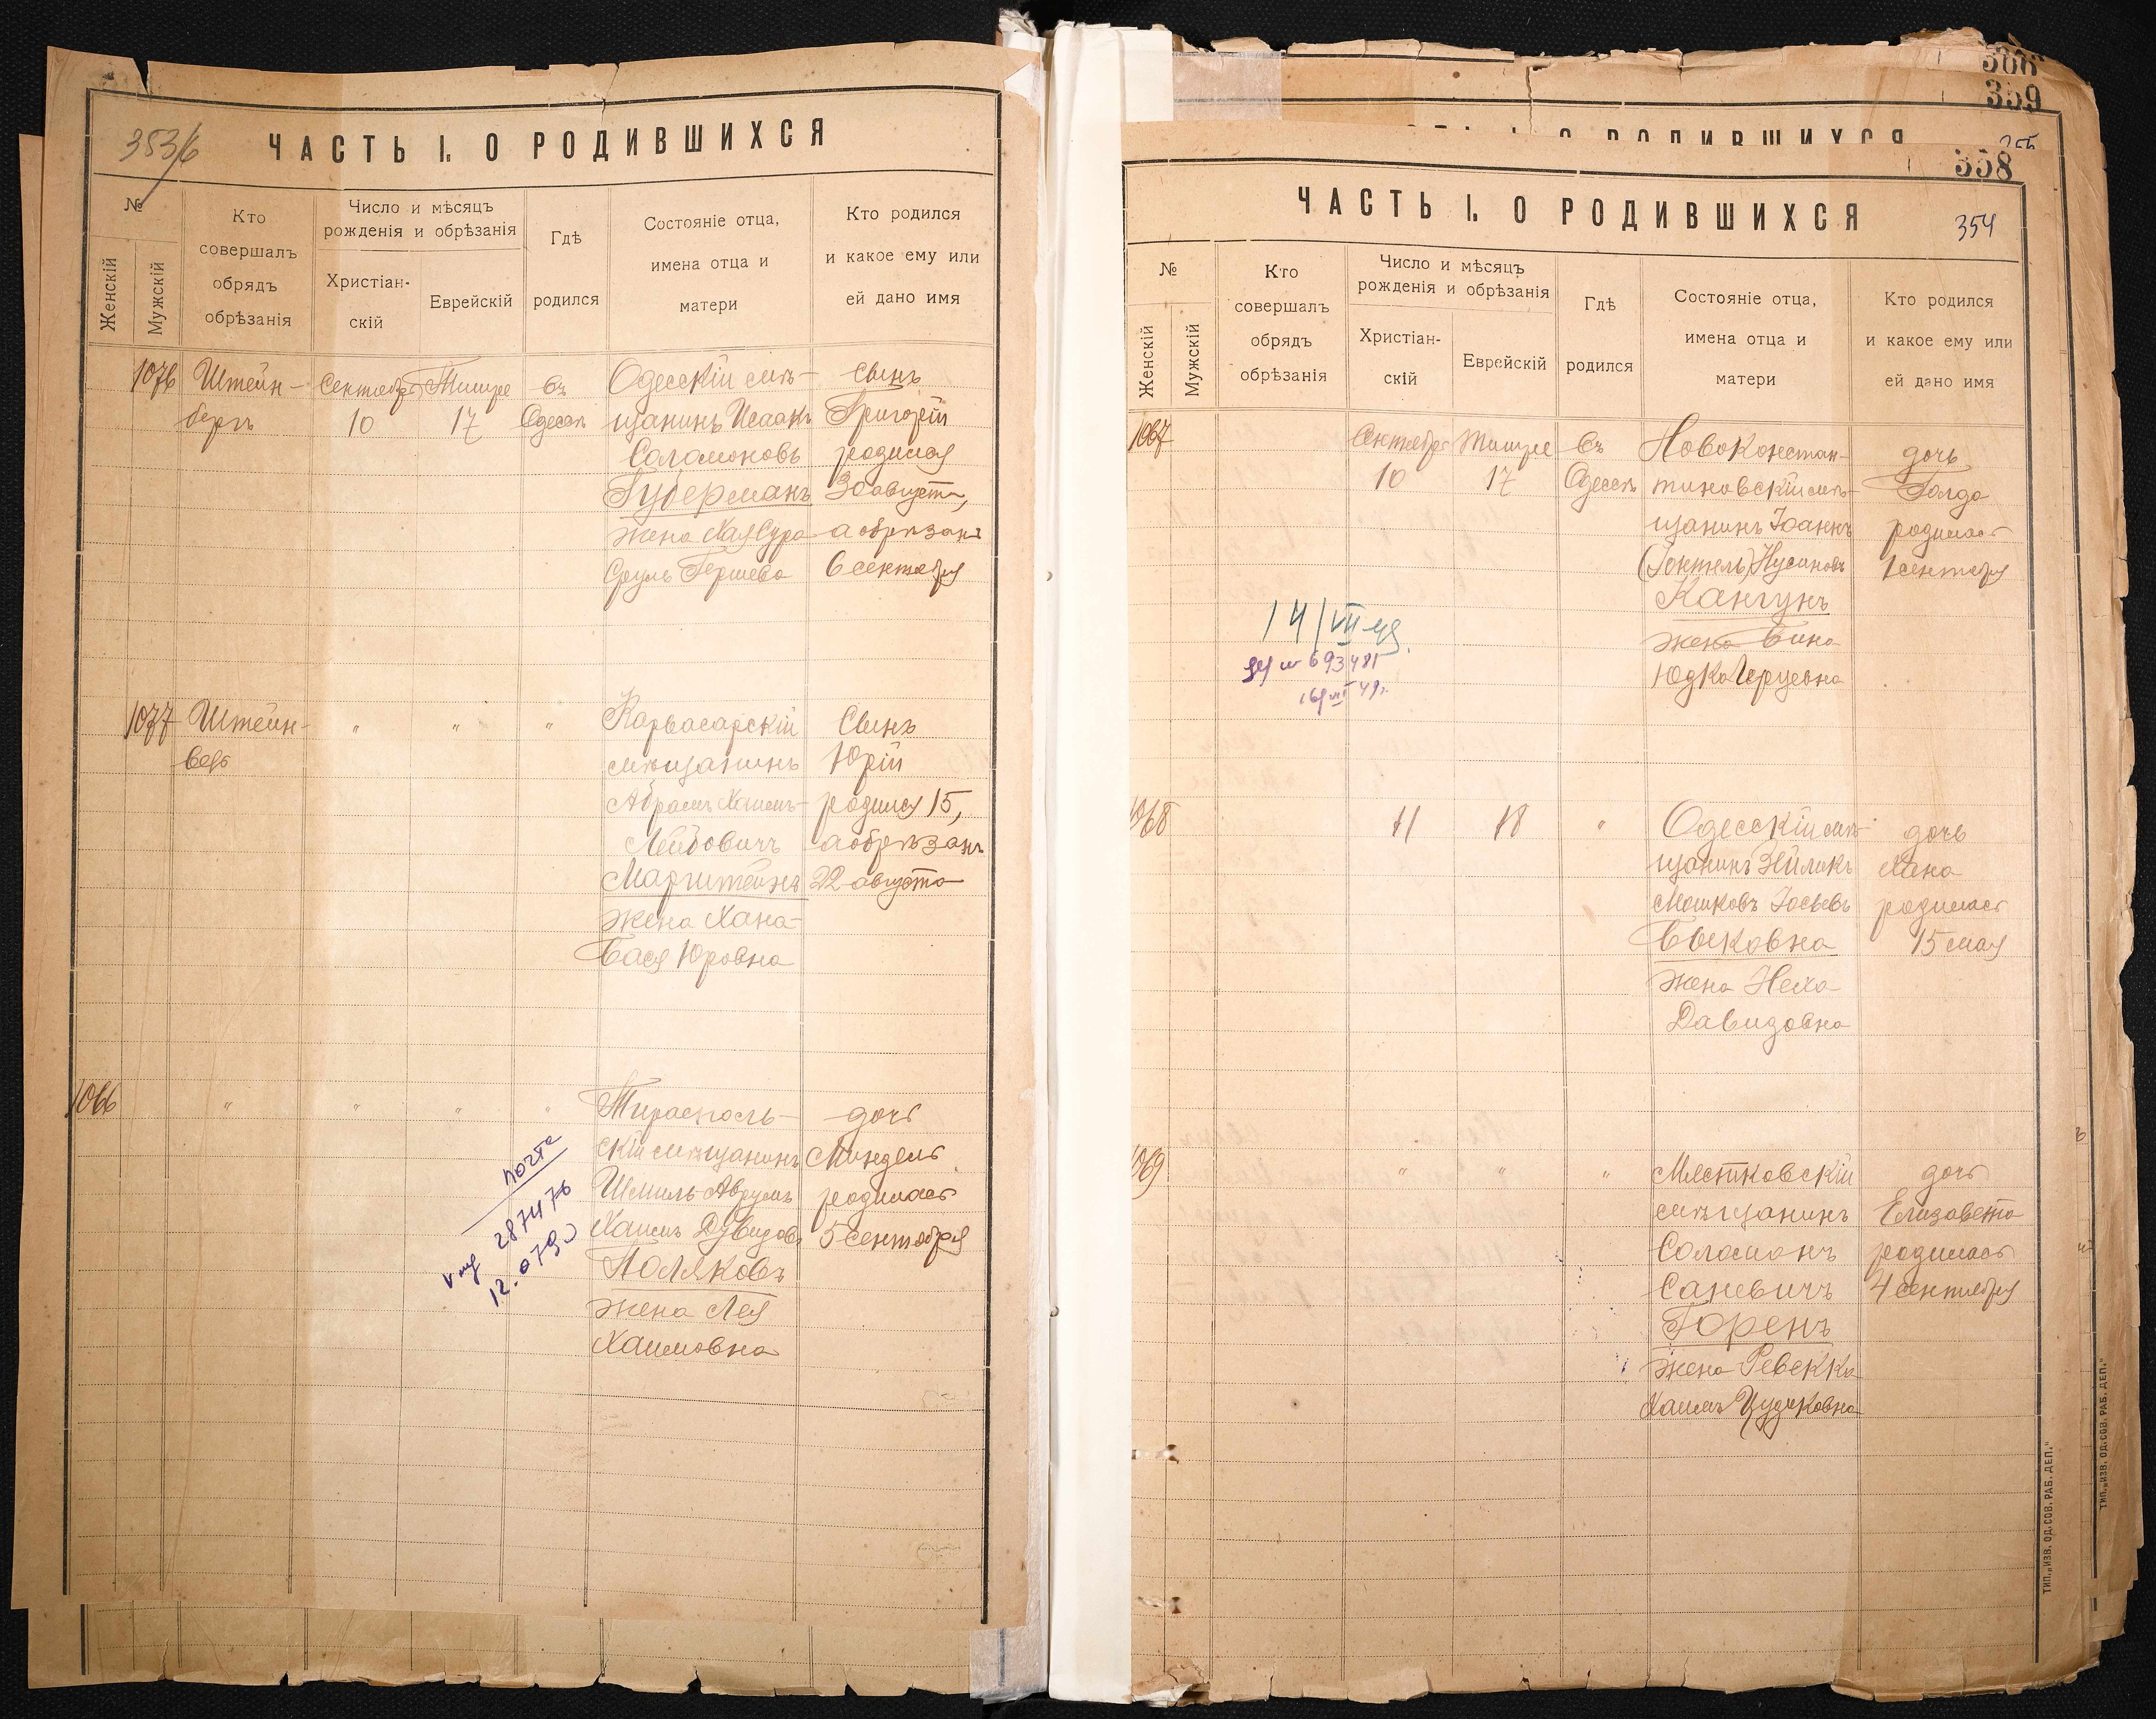 353б
ЧАСТЬ I. О РОДИВШИХСЯ
№
Женскій
Мужскій
Кто
совершалъ
обрядъ
обрѣзанія
Число и мѣсяцъ
рожденія и обрѣзанія
Христіан-
скій
Еврейскій
Гдѣ
родился
Состояніе отца,
имена отца и
матери
Кто родился
и какое ему или
ей дано имя
1076
Штейн-
бергъ
Сентября
10
Тишре
17
въ
Одессѣ
Одесскій мѣ-
щанинъ Исаакъ
Соломоновъ
Губерманъ
жена Хая Сура
Сруль Гершева
Сынъ
Григорій
родился
30 августа,
а обрѣзанъ
6 сентября
1077
Штейн-
бергъ
"
"
"
Карвасарскій
мѣщанинъ
Абрамъ Хаимъ-
Лейбовичъ
Маргштейнъ
жена Хана-
Бася Юровна
Сынъ
Юрій
родился 15,
а обрѣзанъ
22 августа
1066
"
"
"
"
Тирасполь-
скій мѣщанинъ
Шмиль Аврумъ
Хаимъ Дувидовъ
Поляковъ
жена Лея
Хаимовна
дочь
Миндель
родилась
5 сентября
почта
287476
366
359
358
ЧАСТЬ I. О РОДИВШИХСЯ
354
№
Женскій
Мужскій
Кто
совершалъ
обрядъ
обрѣзанія
Число и мѣсяцъ
рожденія и обрѣзанія
Христіан-
скій
Еврейскій
Гдѣ
родился
Состояніе отца,
имена отца и
матери
Кто родился
и какое ему или
ей дано имя
1067
Сентября
10
Тишре
17
въ
Одессѣ
Новоконстан-
тиновскій мѣ-
щанинъ Іоаннъ
(Іонтель) Нусиновъ
Кангунъ
жена Бина
Юдко Герцевна
дочь
Голда
родилась
1 сентября
14/VII 49.
693481
1068
11
18
"
Одесскій мѣ-
щанинъ Зйликъ
Мошковъ Іосьевъ
Быковна
жена Неха
Давидовна
дочь
Хана
родилась
15 мая
1069
"
"
"
Мястковскій
мѣщанинъ
Соломонъ
Саневичъ
Горенъ
жена Ревекка
Хаимъ Цудиковна
дочь
Елизавета
родилась
4 сентября
ТИП. „ИЗВ. ОД. СОВ. РАБ. ДЕП."
ТИП. „ИЗВ. ОД. СОВ. РАБ. ДЕП."